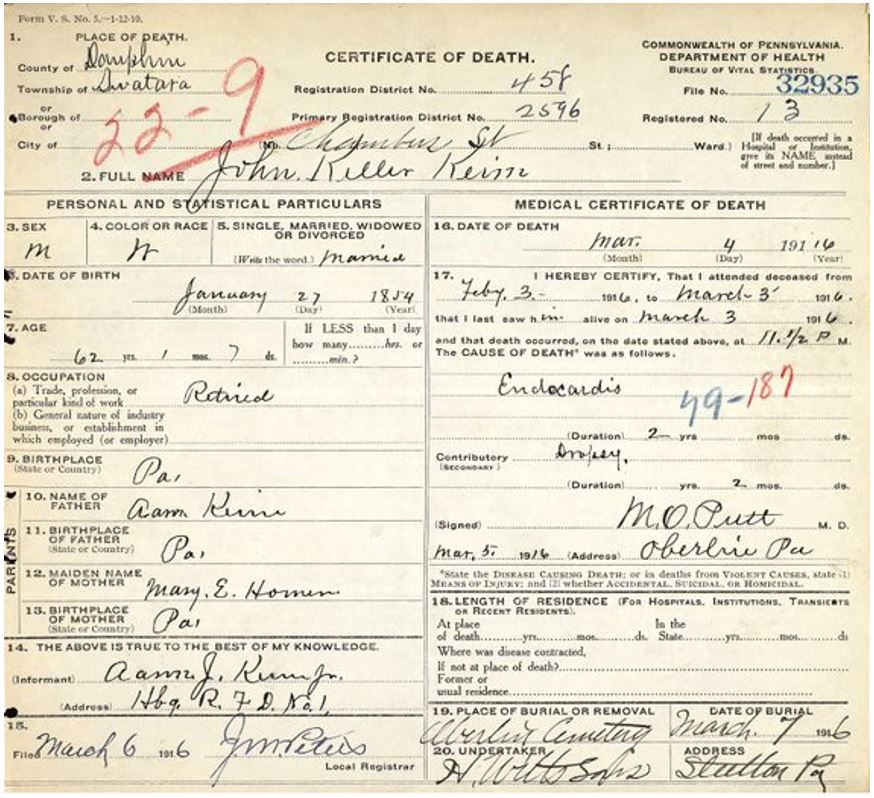 Form V. S. No. 5.—1-12-10.
1. PLACE OF DEATH.
County of Dauphin
Township of Swatara
or
Borough of
or
City of
22-9
CERTIFICATE OF DEATH.
Registration District No. 458
Primary Registration District No. 2596
(No. Chambers St St.; Ward.)
COMMONWEALTH OF PENNSYLVANIA.
DEPARTMENT OF HEALTH
BUREAU OF VITAL STATISTICS.
File No. 32935
Registered No. 13
[If death occurred in a
Hospital or Institution,
give its NAME instead
of street and number.]
2. FULL NAME John Keller Keim
PERSONAL AND STATISTICAL PARTICULARS
3. SEX
M
4. COLOR OR RACE
W
5. SINGLE, MARRIED, WIDOWED
OR DIVORCED
(Write the word.) Married
6. DATE OF BIRTH
January 27 1854
(Month) (Day) (Year)
7. AGE
62 yrs. 1 mos. 7 ds.
If LESS than 1 day
how many hrs. or
min.?
8. OCCUPATION
(a) Trade, profession, or
particular kind of work
Retired
(b) General nature of industry
business, or establishment in
which employed (or employer)
9. BIRTHPLACE
(State or Country)
Pa.
PARENTS
10. NAME OF
FATHER
Aaron Keim
11. BIRTHPLACE
OF FATHER
(State or Country)
Pa.
12. MAIDEN NAME
OF MOTHER
Mary. E. Homen
13. BIRTHPLACE
OF MOTHER
(State or Country)
Pa.
14. THE ABOVE IS TRUE TO THE BEST OF MY KNOWLEDGE.
(Informant) Aaron J. Keim Jr.
(Address) Hbg. R. F. D. No. 1,
15.
Filed March 6 1916 J M Peters
Local Registrar
MEDICAL CERTIFICATE OF DEATH
16. DATE OF DEATH
Mar. 4 19116
(Month) (Day) (Year)
17. I HEREBY CERTIFY, That I attended deceased from
Feby. 3 - 1916, to March 3 1916.
that I last saw him alive on March 3 1916.
and that death occurred, on the date stated above, at 11.1/2 P M.
The CAUSE OF DEATH* was as follows.
Endocardis
79-187
(Duration) 2 yrs mos ds.
Contributory Dropsy.
(SECONDARY)
(Duration) yrs. 2 mos. ds.
(Signed) M. O. Putt M. D.
Mar, 5. 1916 (Address) Oberlin Pa
*State the DISEASE CAUSING DEATH; or in deaths from VIOLENT CAUSES, state (1)
MEANS OF INJURY; and (2) whether ACCIDENTAL, SUICIDAL, OR HOMICIDAL.
18. LENGTH OF RESIDENCE (FOR HOSPITALS, INSTITUTIONS, TRANSIENTS
OR RECENT RESIDENTS).
At place In the
of death yrs. mos. ds. State yrs. mos. ds
Where was disease contracted,
If not at place of death?
Former or
usual residence
19. PLACE OF BURIAL OR REMOVAL
Oberlin Cemetery
DATE OF BURIAL
March. 7 1916
20. UNDERTAKER
H. Witts Sons
ADDRESS
Steelton Pa